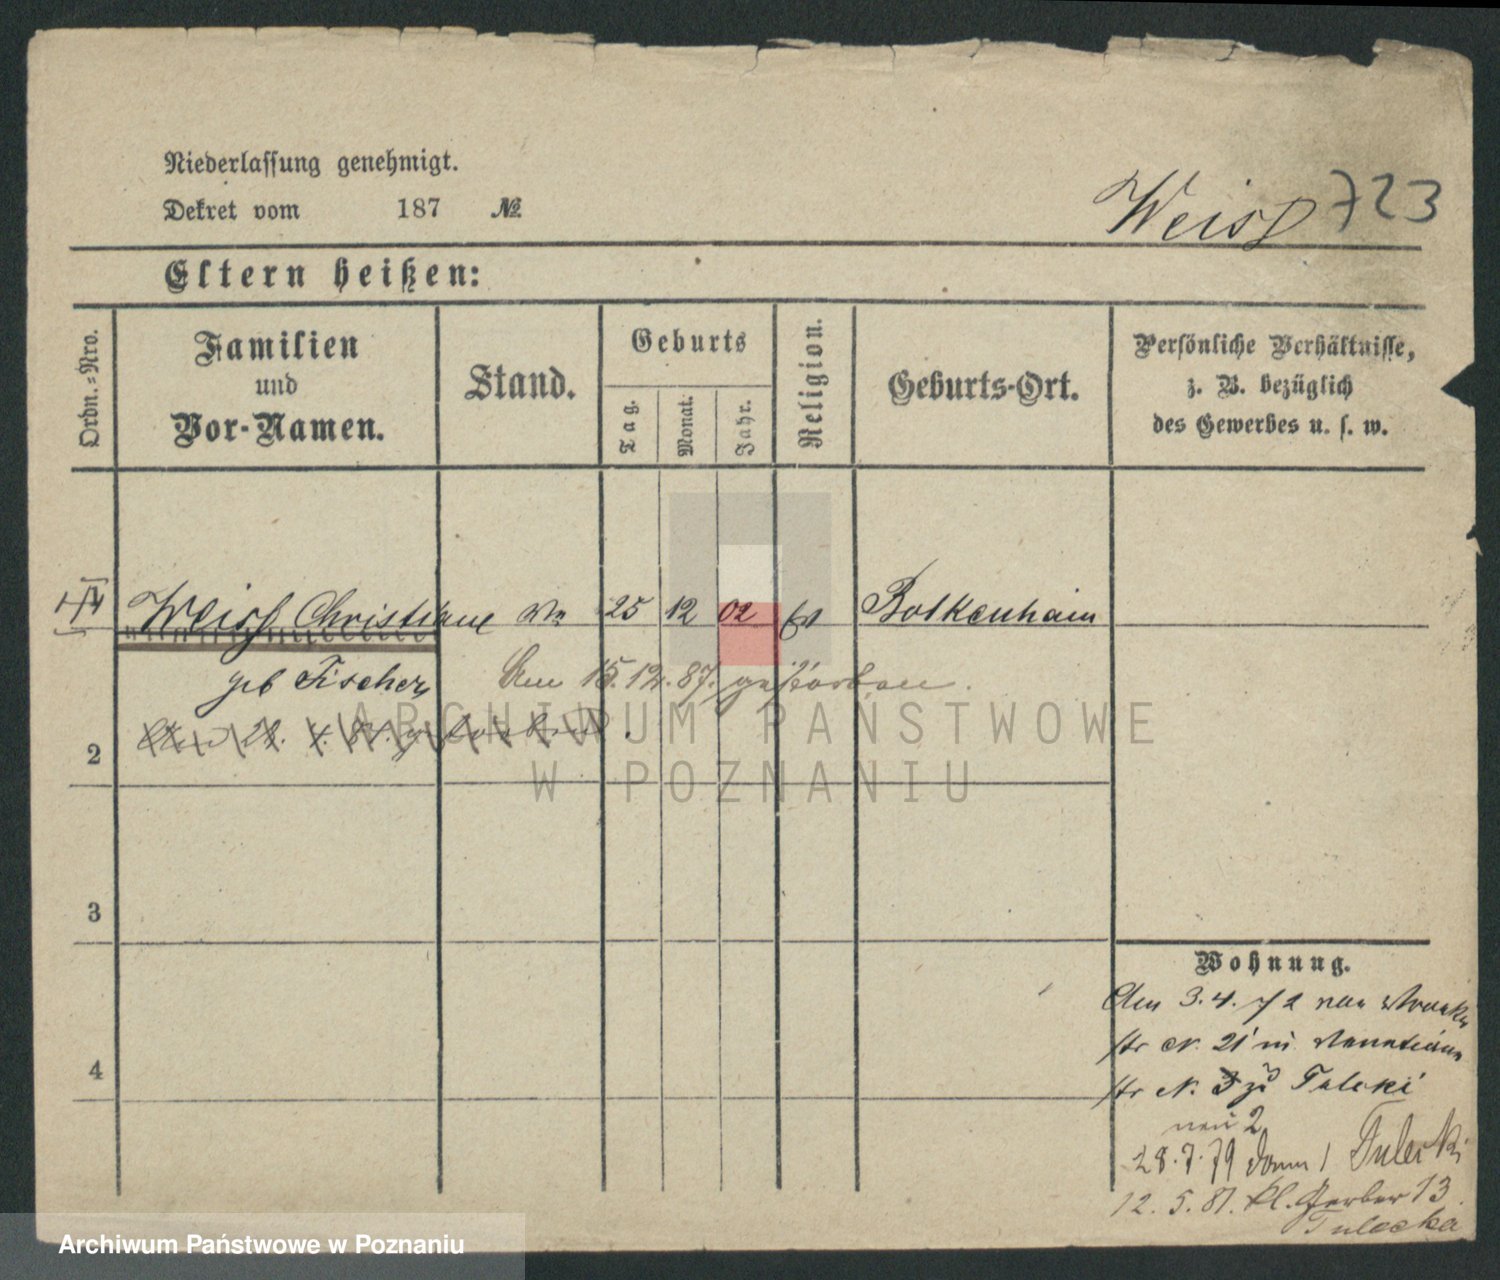 Niederlassung genehmigt.
Dekret vom 187 №
Weiss 723
Eltern heißen:
Ordn.-Nro.
Familien
und
Vor-Namen.
Stand.
Geburts
Tag.
Monat.
Jahr.
Religion.
Geburts-Ort.
Persönliche Verhältnisse,
z. B. bezüglich
des Gewerbes u. s. w.
Weiss Christiane Ww 25 12 02 Ev Bolkenhain
geb Fischer
Am 15.12.87. gestorben.
2
3
4
Wohnung.
Am 3.4.72 von
str N. 21 in
str N. 3 zu Tulecki
neu 2
28.7.79 Dom 1 Tulecki
12.5.81. kl. Gerber 13
Tulecka
ARCHIWUM PAŃSTWOWE
W POZNANIU
Archiwum Państwowe w Poznaniu